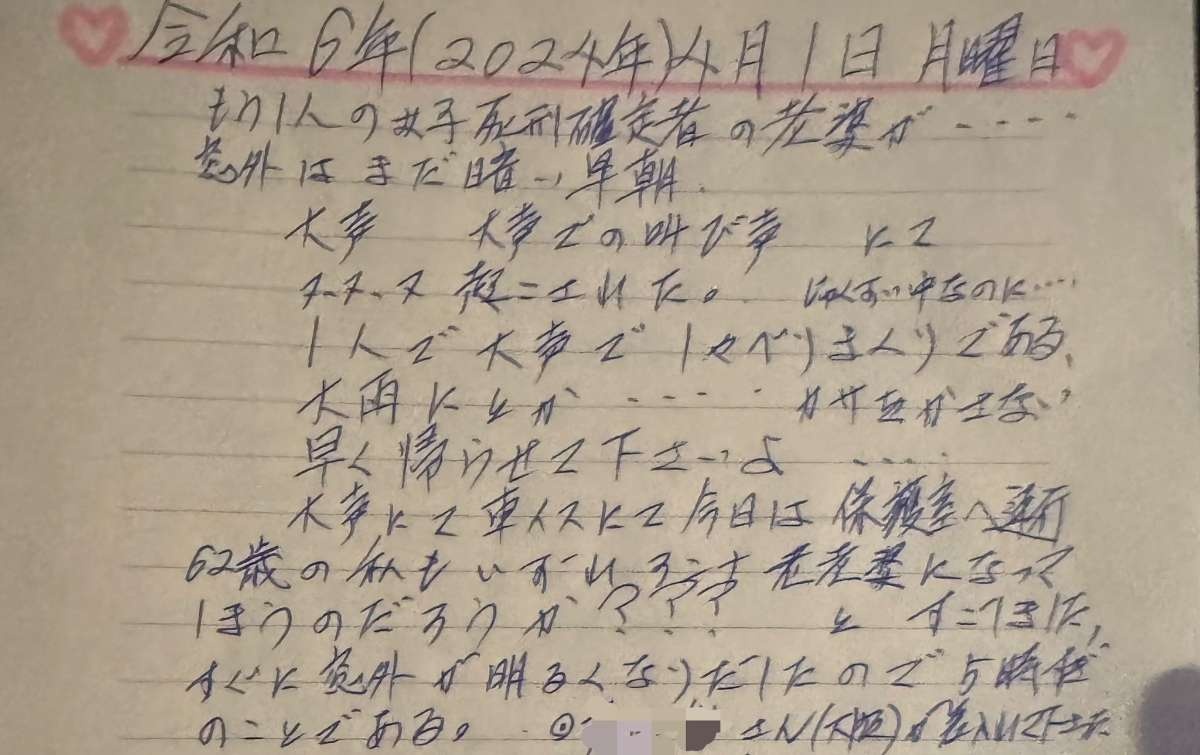 令和6年(2024年)4月1日 月曜日
もう1人の女子死刑確定者の老婆が‥‥
窓外はまだ暗い早朝.
大声 大声での叫び声 にて
ヌ-ヌ-ヌ 起こされた。 じゅくすい中なのに‥‥
1人で大声でしゃべりまくりである、
大雨にとか ‥‥ カサをかさない
早く帰らせて下さいよ ‥‥
大声にて車イスにて今日は保護室へ連行
62歳の私もいずれそうす老老婆になって
しまうのだろうか??? と すごしました,
すぐに窓外が明るくなりだしたので5時半
のことである。 さん(大阪)が差入れして下さった